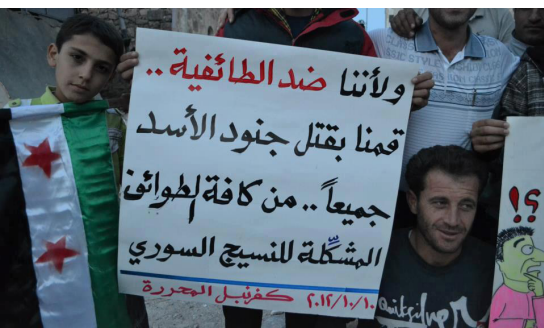 ولأننا ضد الطائفية ..
قمنا بقتل جنود الأسد
جميعاً .. من كافة الطوائف
المشكِّلة للنسيج السوري
كفرنبل المحررة ٢٠١٢/١٠/١٠
Quiksilver
؟!